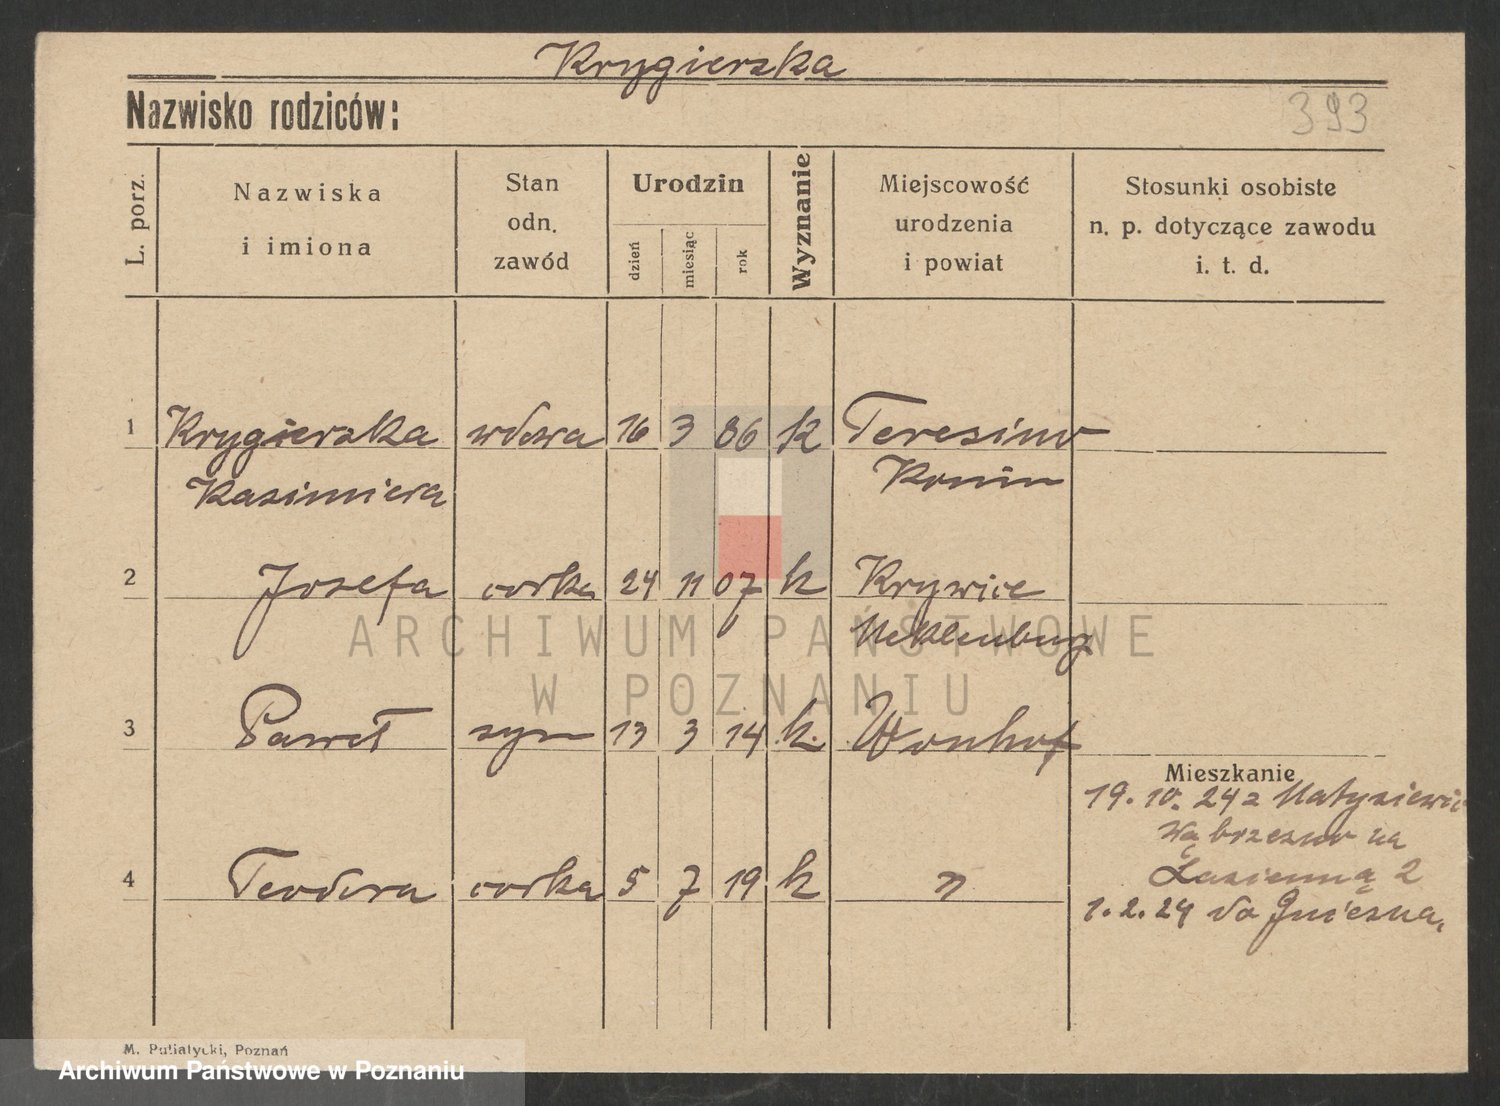 Krygierska
Nazwisko rodziców:
393
L. porz.
Nazwiska
i imiona
Stan
odn.
zawód
Urodzin
dzień
miesiąc
rok
Wyznanie
Miejscowość
urodzenia
i powiat
Stosunki osobiste
n. p. dotyczące zawodu
i. t. d.
1 Krygierska wdowa 16 3 86 k Teresinw
Kazimiera Konin
2 Josefa corka 24 11 07 k Krywice
Meklenburg
3 Paweł syn 13 3 14 k. Wonhof
Mieszkanie
19. 10. 24 z Matysiewic
Wąbrzeznw na
4 Teodora corka 5 7 19 k "
Łazienną 2
1. 2. 24 do Gniezna,
M. Putiatycki, Poznań
ARCHIWUM PAŃSTWOWE
W POZNANIU
Archiwum Państwowe w Poznaniu